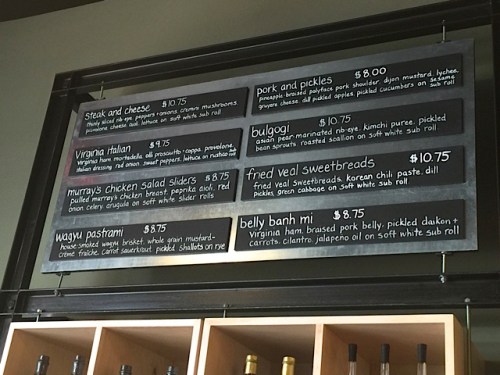 steak and cheese $10.75
thinly sliced rib-eye, peppers + onions, cremini mushrooms,
provolone cheese, lettuce on soft white sub roll
Virginia italian $9.75
Virginia ham, mortadella, olli prosciutto + coppa, provolone,
italian dressing, red onion, sweet peppers, lettuce on rustica sub
murray's chicken salad sliders $8.75
pulled murray's chicken breast, paprika aioli, red
onion, celery, arugula on soft white slider rolls
wagyu pastrami $8.75
house smoked wagyu brisket, whole grain mustard-
crème fraîche, carrot sauerkraut, pickled shallots on rye
pork and pickles $8.00
pineapple-braised polyface pork shoulder, dijon mustard, lychee,
gruyere cheese, dill pickled apples, pickled cucumbers on sesame
sub roll
bulgogi $10.75
asian pear marinated rib-eye, kimchi puree, pickled
bean sprouts, roasted scallion on soft white sub roll
fried veal sweetbreads $10.75
fried veal sweetbreads, korean chili paste, dill
pickles, green cabbage on soft white sub roll
belly banh mi $8.75
Virginia ham, braised pork belly, pickled daikon +
carrots, cilantro, jalapeño oil on soft white sub roll